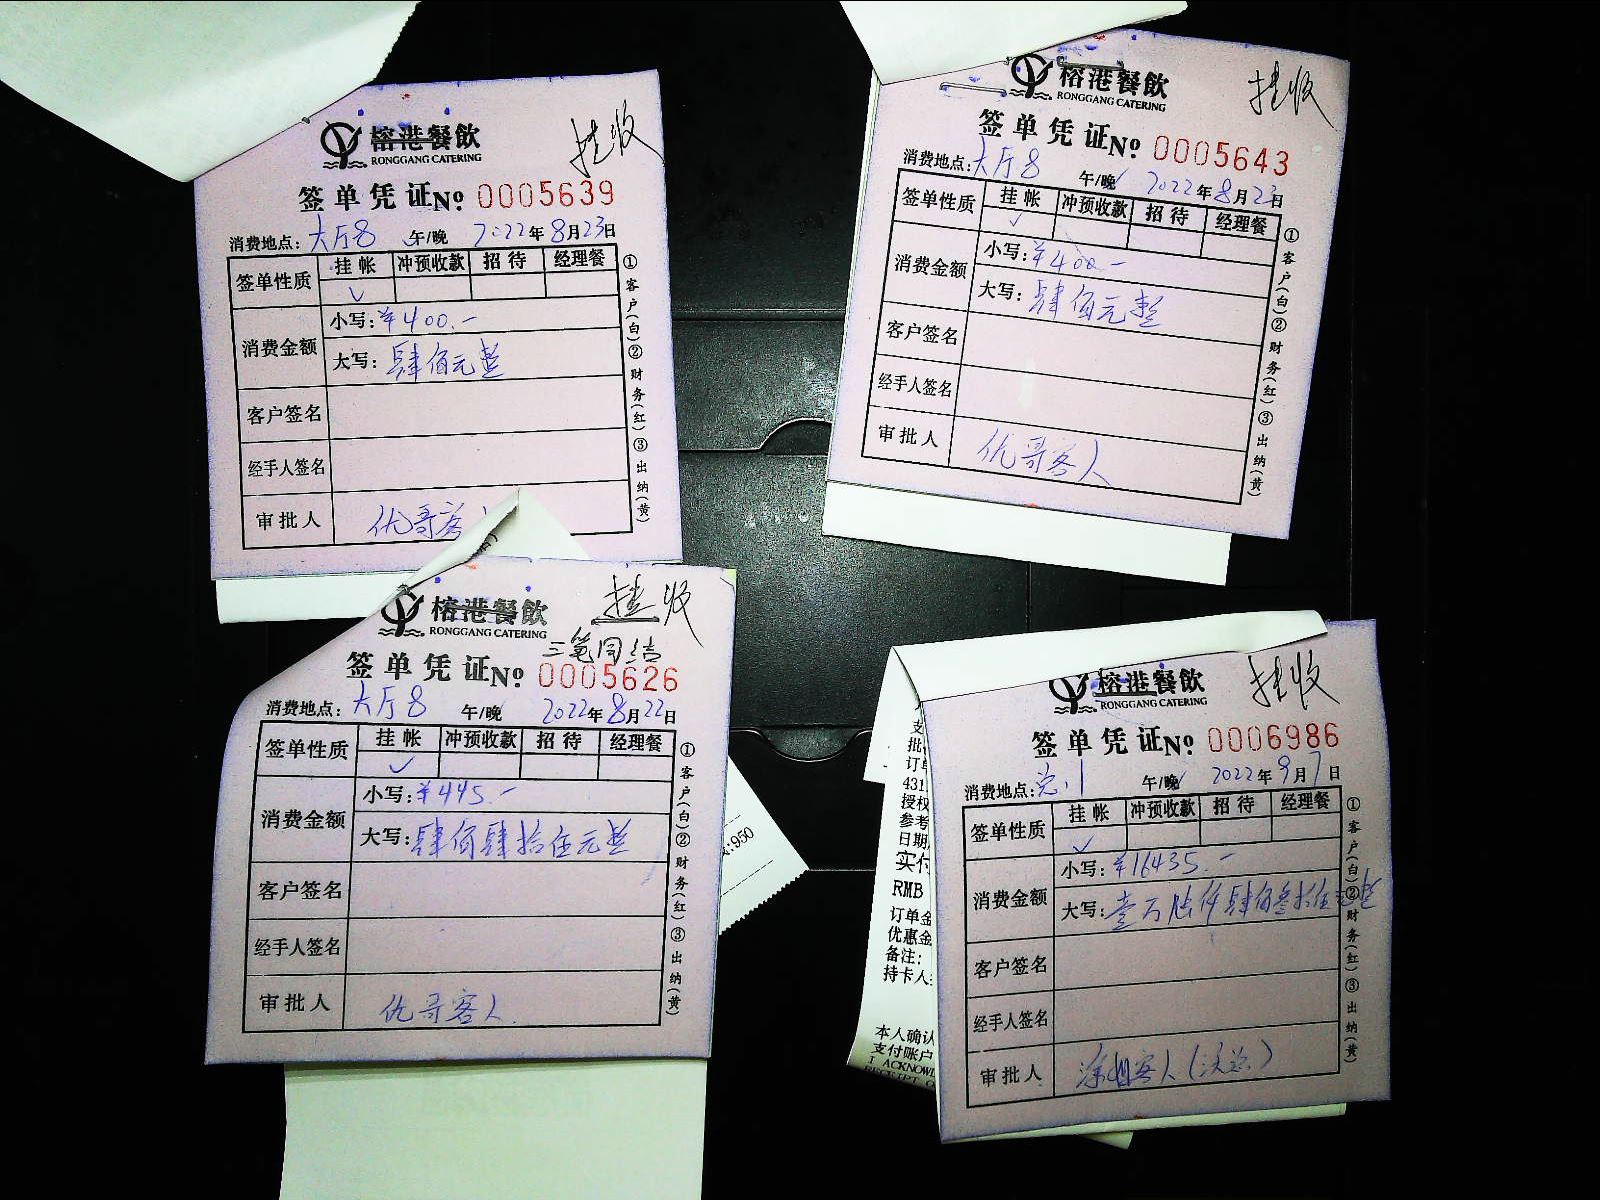 榕港餐飲
RONGGANG CATERING
挂收
签单凭证No. 0005639
消费地点: 大厅8 午/晚 2022年8月23日
签单性质 挂帐 冲预收款 招待 经理餐
✓
消费金额
小写: ¥400.-
大写: 肆佰元整
客户签名
经手人签名
审批人 优哥客
①客户(白)②财务(红)③出纳(黄)
榕港餐飲
RONGGANG CATERING
挂收
签单凭证No. 0005643
消费地点: 大厅8 午/晚 2022年8月23日
签单性质 挂帐 冲预收款 招待 经理餐
✓
消费金额
小写: ¥400.-
大写: 肆佰元整
客户签名
经手人签名
审批人 优哥客人
①客户(白)②财务(红)③出纳(黄)
榕港餐飲
RONGGANG CATERING
挂收
三笔同结
签单凭证No. 0005626
消费地点: 大厅8 午/晚 2022年8月22日
签单性质 挂帐 冲预收款 招待 经理餐
✓
消费金额
小写: ¥445.-
大写: 肆佰肆拾伍元整
客户签名
经手人签名
审批人 优哥客人
①客户(白)②财务(红)③出纳(黄)
:950
榕港餐飲
RONGGANG CATERING
挂收
签单凭证No. 0006986
消费地点: 午/晚 2022年9月7日
签单性质 挂帐 冲预收款 招待 经理餐
✓
消费金额
小写: ¥16435.-
大写: 壹万陆仟肆佰叁拾伍元整
客户签名
经手人签名
审批人 客人
①客户(白)②财务(红)③出纳(黄)
支
批
订单
431
授权
参考
日期
实付
RMB
订单金
优惠金
备注:
持卡人
本人确认
支付账户
I ACKNOW
RECEIPT O